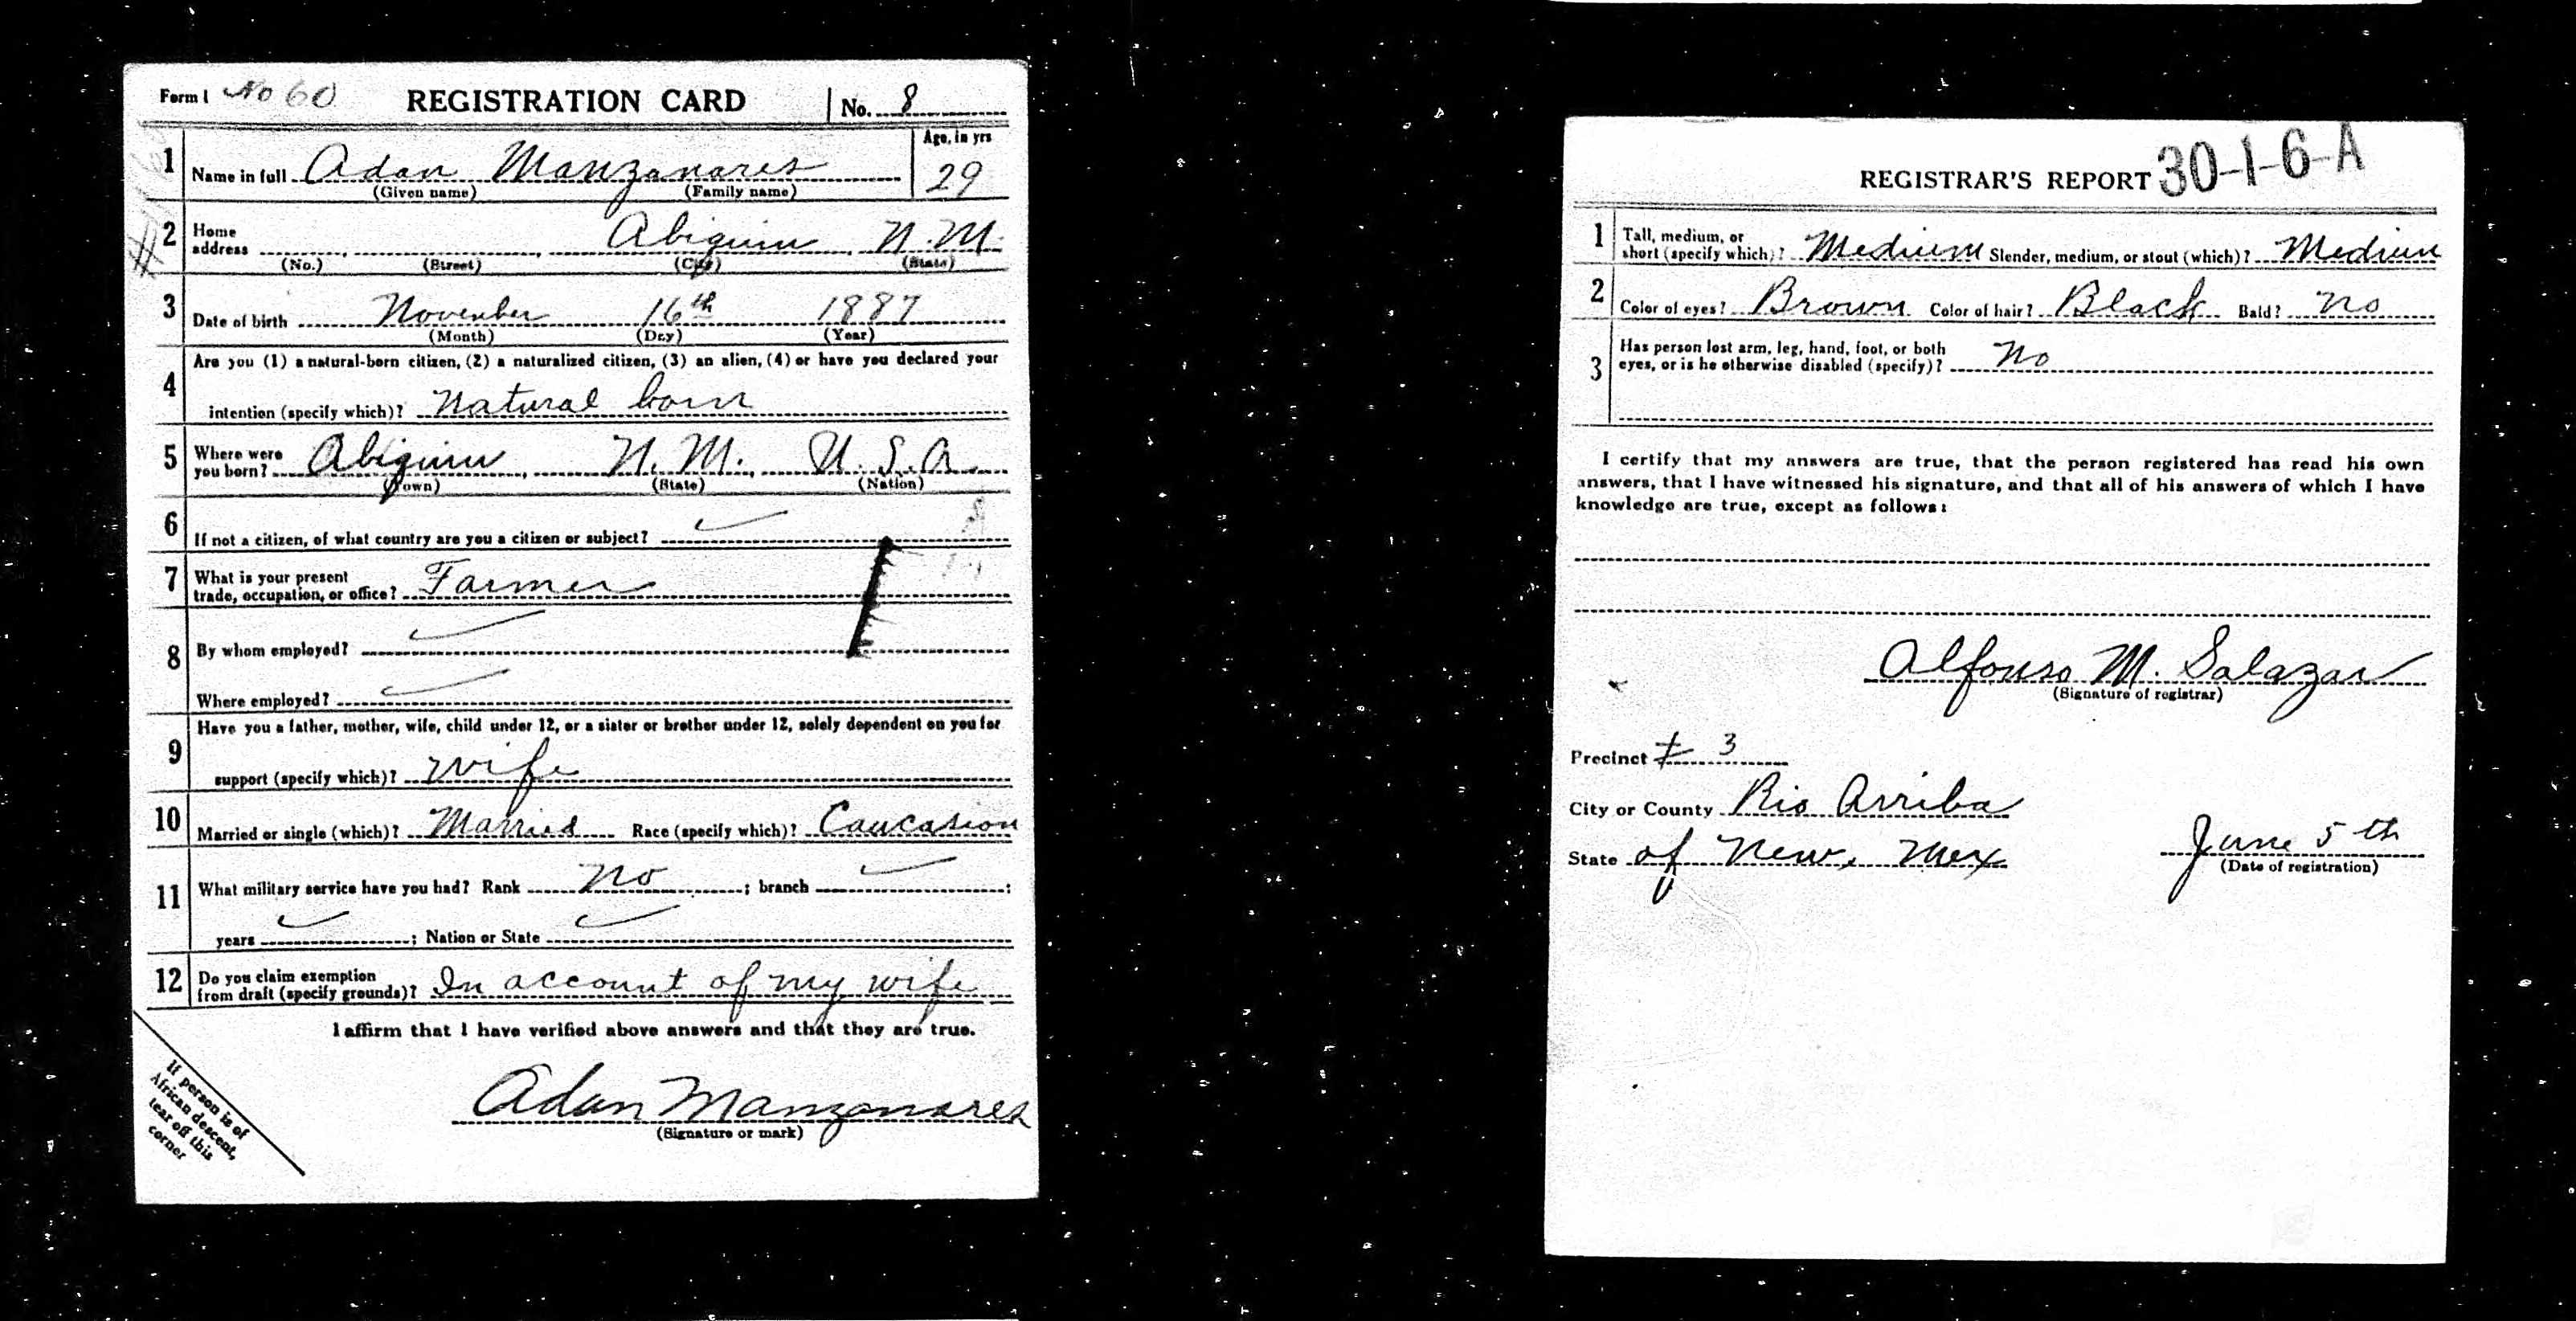 Form 1 No 60 REGISTRATION CARD No. 8
1 Name in full Adan Manzanares Age, in yrs 29
(Given name) (Family name)
2 Home address Abiquiu, N.M.
(No.) (Street) (City) (State)
3 Date of birth November 16th 1887
(Month) (Day) (Year)
4 Are you (1) a natural-born citizen, (2) a naturalized citizen, (3) an alien, (4) or have you declared your
intention (specify which)? Natural born
5 Where were you born? Abiquiu, N. M., U. S. A.
(Town) (State) (Nation)
6 If not a citizen, of what country are you a citizen or subject?
7 What is your present
trade, occupation, or office? Farmer
8 By whom employed?
Where employed?
9 Have you a father, mother, wife, child under 12, or a sister or brother under 12, solely dependent on you for
support (specify which)? wife
10 Married or single (which)? Married Race (specify which)? Caucasion
11 What military service have you had? Rank No ; branch ;
years ; Nation or State
12 Do you claim exemption
from draft (specify grounds)? In account of my wife
I affirm that I have verified above answers and that they are true.
Adan Manzanares
(Signature or mark)
If person is of
African descent,
tear off this
corner
REGISTRAR'S REPORT 30-1-6-A
1 Tall, medium, or
short (specify which)? Medium Slender, medium, or stout (which)? Medium
2 Color of eyes? Brown Color of hair? Black Bald? No
3 Has person lost arm, leg, hand, foot, or both
eyes, or is he otherwise disabled (specify)? No
I certify that my answers are true, that the person registered has read his own
answers, that I have witnessed his signature, and that all of his answers of which I have
knowledge are true, except as follows:
Alfonso M. Salazar
(Signature of registrar)
Precinct # 3
City or County Rio Arriba
State of New. Mex June 5th
(Date of registration)